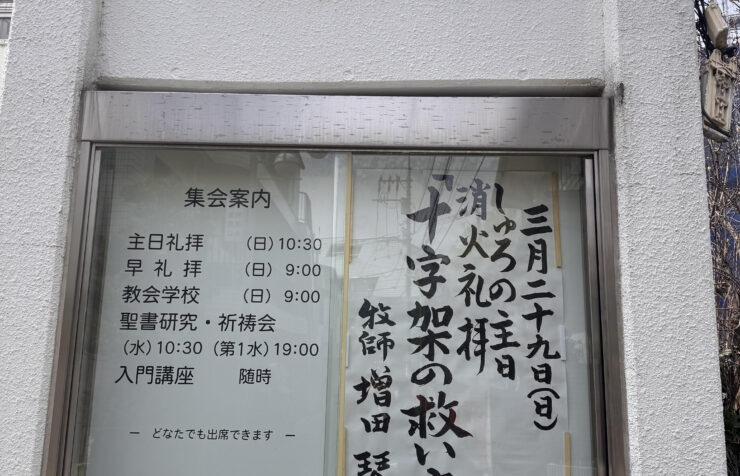 集会案内
主日礼拝 (日) 10:30
早礼拝 (日) 9:00
教会学校 (日) 9:00
聖書研究・祈祷会
(水) 10:30 (第1水) 19:00
入門講座 随時
ー どなたでも出席できます ー
三月二十九日(日)
しゅろの主日
消火礼拝
「十字架の救い
牧師 増田 琴